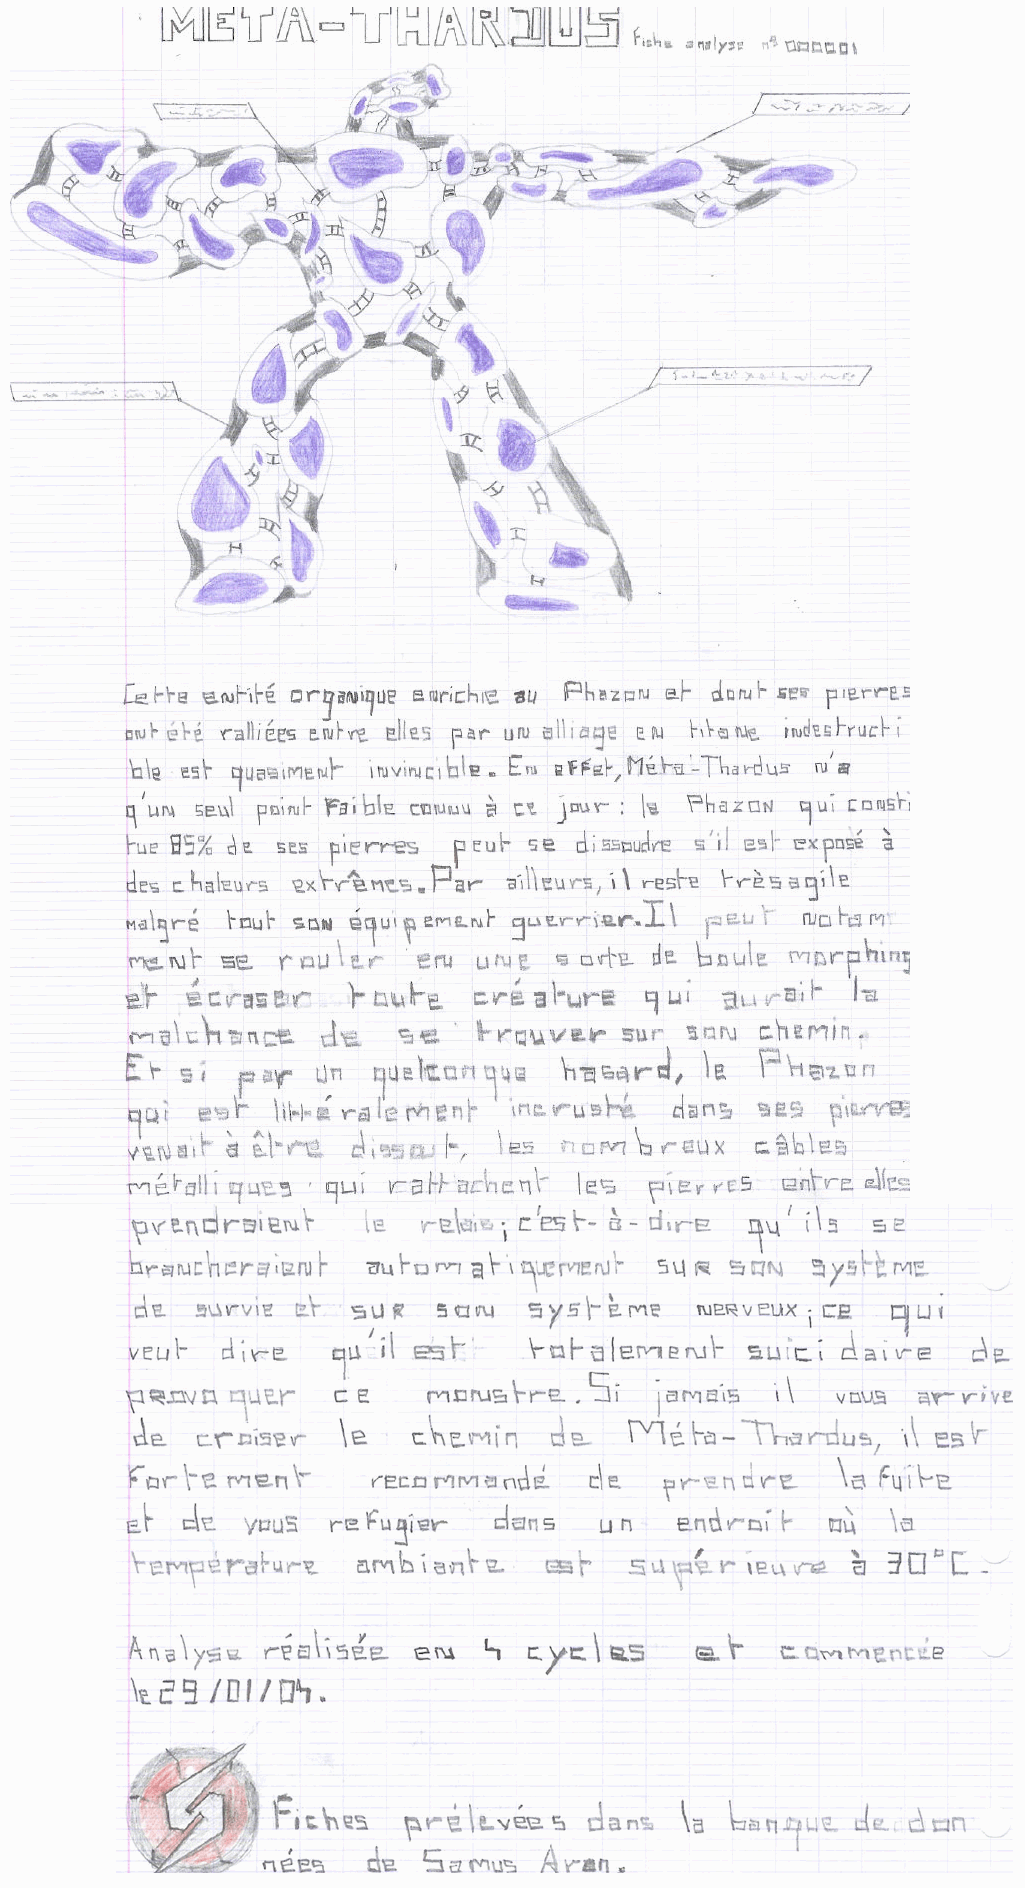 META-THARDUS Fiche analyse n° 000001
Cette entité organique enrichie au Phazon et dont ses pierres
ont été ralliées entre elles par un alliage en titane indestructi
ble est quasiment invincible. En effet, Méta-Thardus n'a
q'un seul point faible connu à ce jour : le Phazon qui consti
tue 85% de ses pierres peut se dissoudre s'il est exposé à
des chaleurs extrêmes. Par ailleurs, il reste très agile
malgré tout son équipement guerrier. Il peut notam
ment se rouler en une sorte de boule morphing
et écraser toute créature qui aurait la
malchance de se trouver sur son chemin.
Et si par un quelconque hasard, le Phazon
qui est littéralement incrusté dans ses pierres
venait à être dissout, les nombreux câbles
métalliques qui rattachent les pierres entre elles
prendraient le relais ; c'est-à-dire qu'ils se
brancheraient automatiquement sur son système
de survie et sur son système nerveux ; ce qui
veut dire qu'il est totalement suicidaire de
provoquer ce monstre. Si jamais il vous arrive
de croiser le chemin de Méta-Thardus, il est
fortement recommandé de prendre la fuite
et de vous refugier dans un endroit où la
température ambiante est supérieure à 30°C.
Analyse réalisée en 4 cycles et commencée
le 29/01/04.
Fiches prélevées dans la banque de don
nées de Samus Aran.